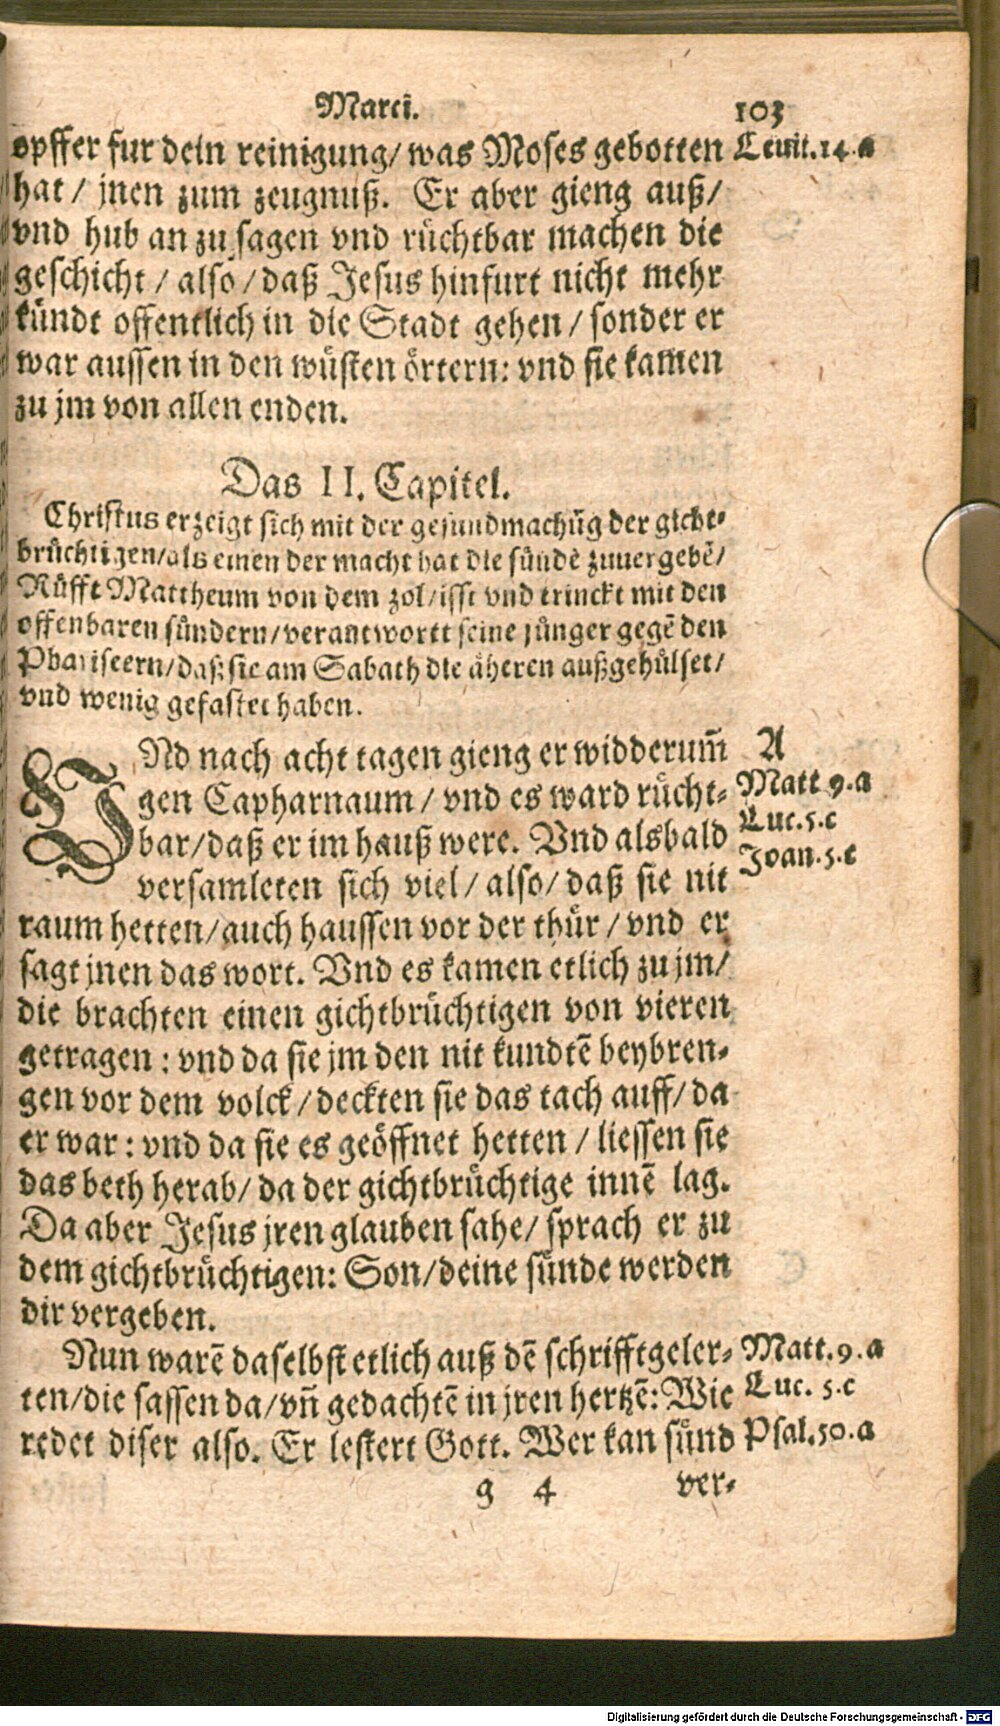 Marci. 103
opffer fur dein reinigung/ was Moses gebotten Leuit.14.a
hat / jnen zum zeugnuß. Er aber gieng auß/
vnd hub an zu sagen vnd rüchtbar machen die
geschicht / also / daß Jesus hinfurt nicht mehr
kündt offentlich in die Stadt gehen / sonder er
war aussen in den wüsten örtern: vnd sie kamen
zu jm von allen enden.
Das II. Capitel.
Christus erzeigt sich mit der gesundmachūg der gicht-
brüchtigen/als einen der macht hat die sündē zuuergebē/
Rüfft Mattheum von dem zol/isst vnd trinckt mit den
offenbaren sündern/verantwortt seine jünger gegē den
Phariseern/daß sie am Sabath die äheren außgehülset/
vnd wenig gefastet haben.
VNd nach acht tagen gieng er widderum̄ A
gen Capharnaum / vnd es ward rücht- Matt 9.a
bar/daß er im hauß were. Vnd alsbald Luc.5.c
versamleten sich viel/ also/ daß sie nit Joan.5.c
raum hetten/auch haussen vor der thür / vnd er
sagt jnen das wort. Vnd es kamen etlich zu jm/
die brachten einen gichtbrüchtigen von vieren
getragen : vnd da sie jm den nit kundtē beybren-
gen vor dem volck/deckten sie das tach auff/ da
er war : vnd da sie es geöffnet hetten / liessen sie
das beth herab/ da der gichtbrüchtige innē lag.
Da aber Jesus jren glauben sahe/ sprach er zu
dem gichtbrüchtigen: Son/deine sünde werden
dir vergeben.
Nun warē daselbst etlich auß dē schrifftgeler- Matt.9.a
ten/die sassen da/vn̄ gedachtē in jren hertzē: Wie Luc. 5.c
redet diser also. Er lestert Gott. Wer kan sünd Psal.50.a
g 4 ver-
Digitalisierung gefördert durch die Deutsche Forschungsgemeinschaft - DFG